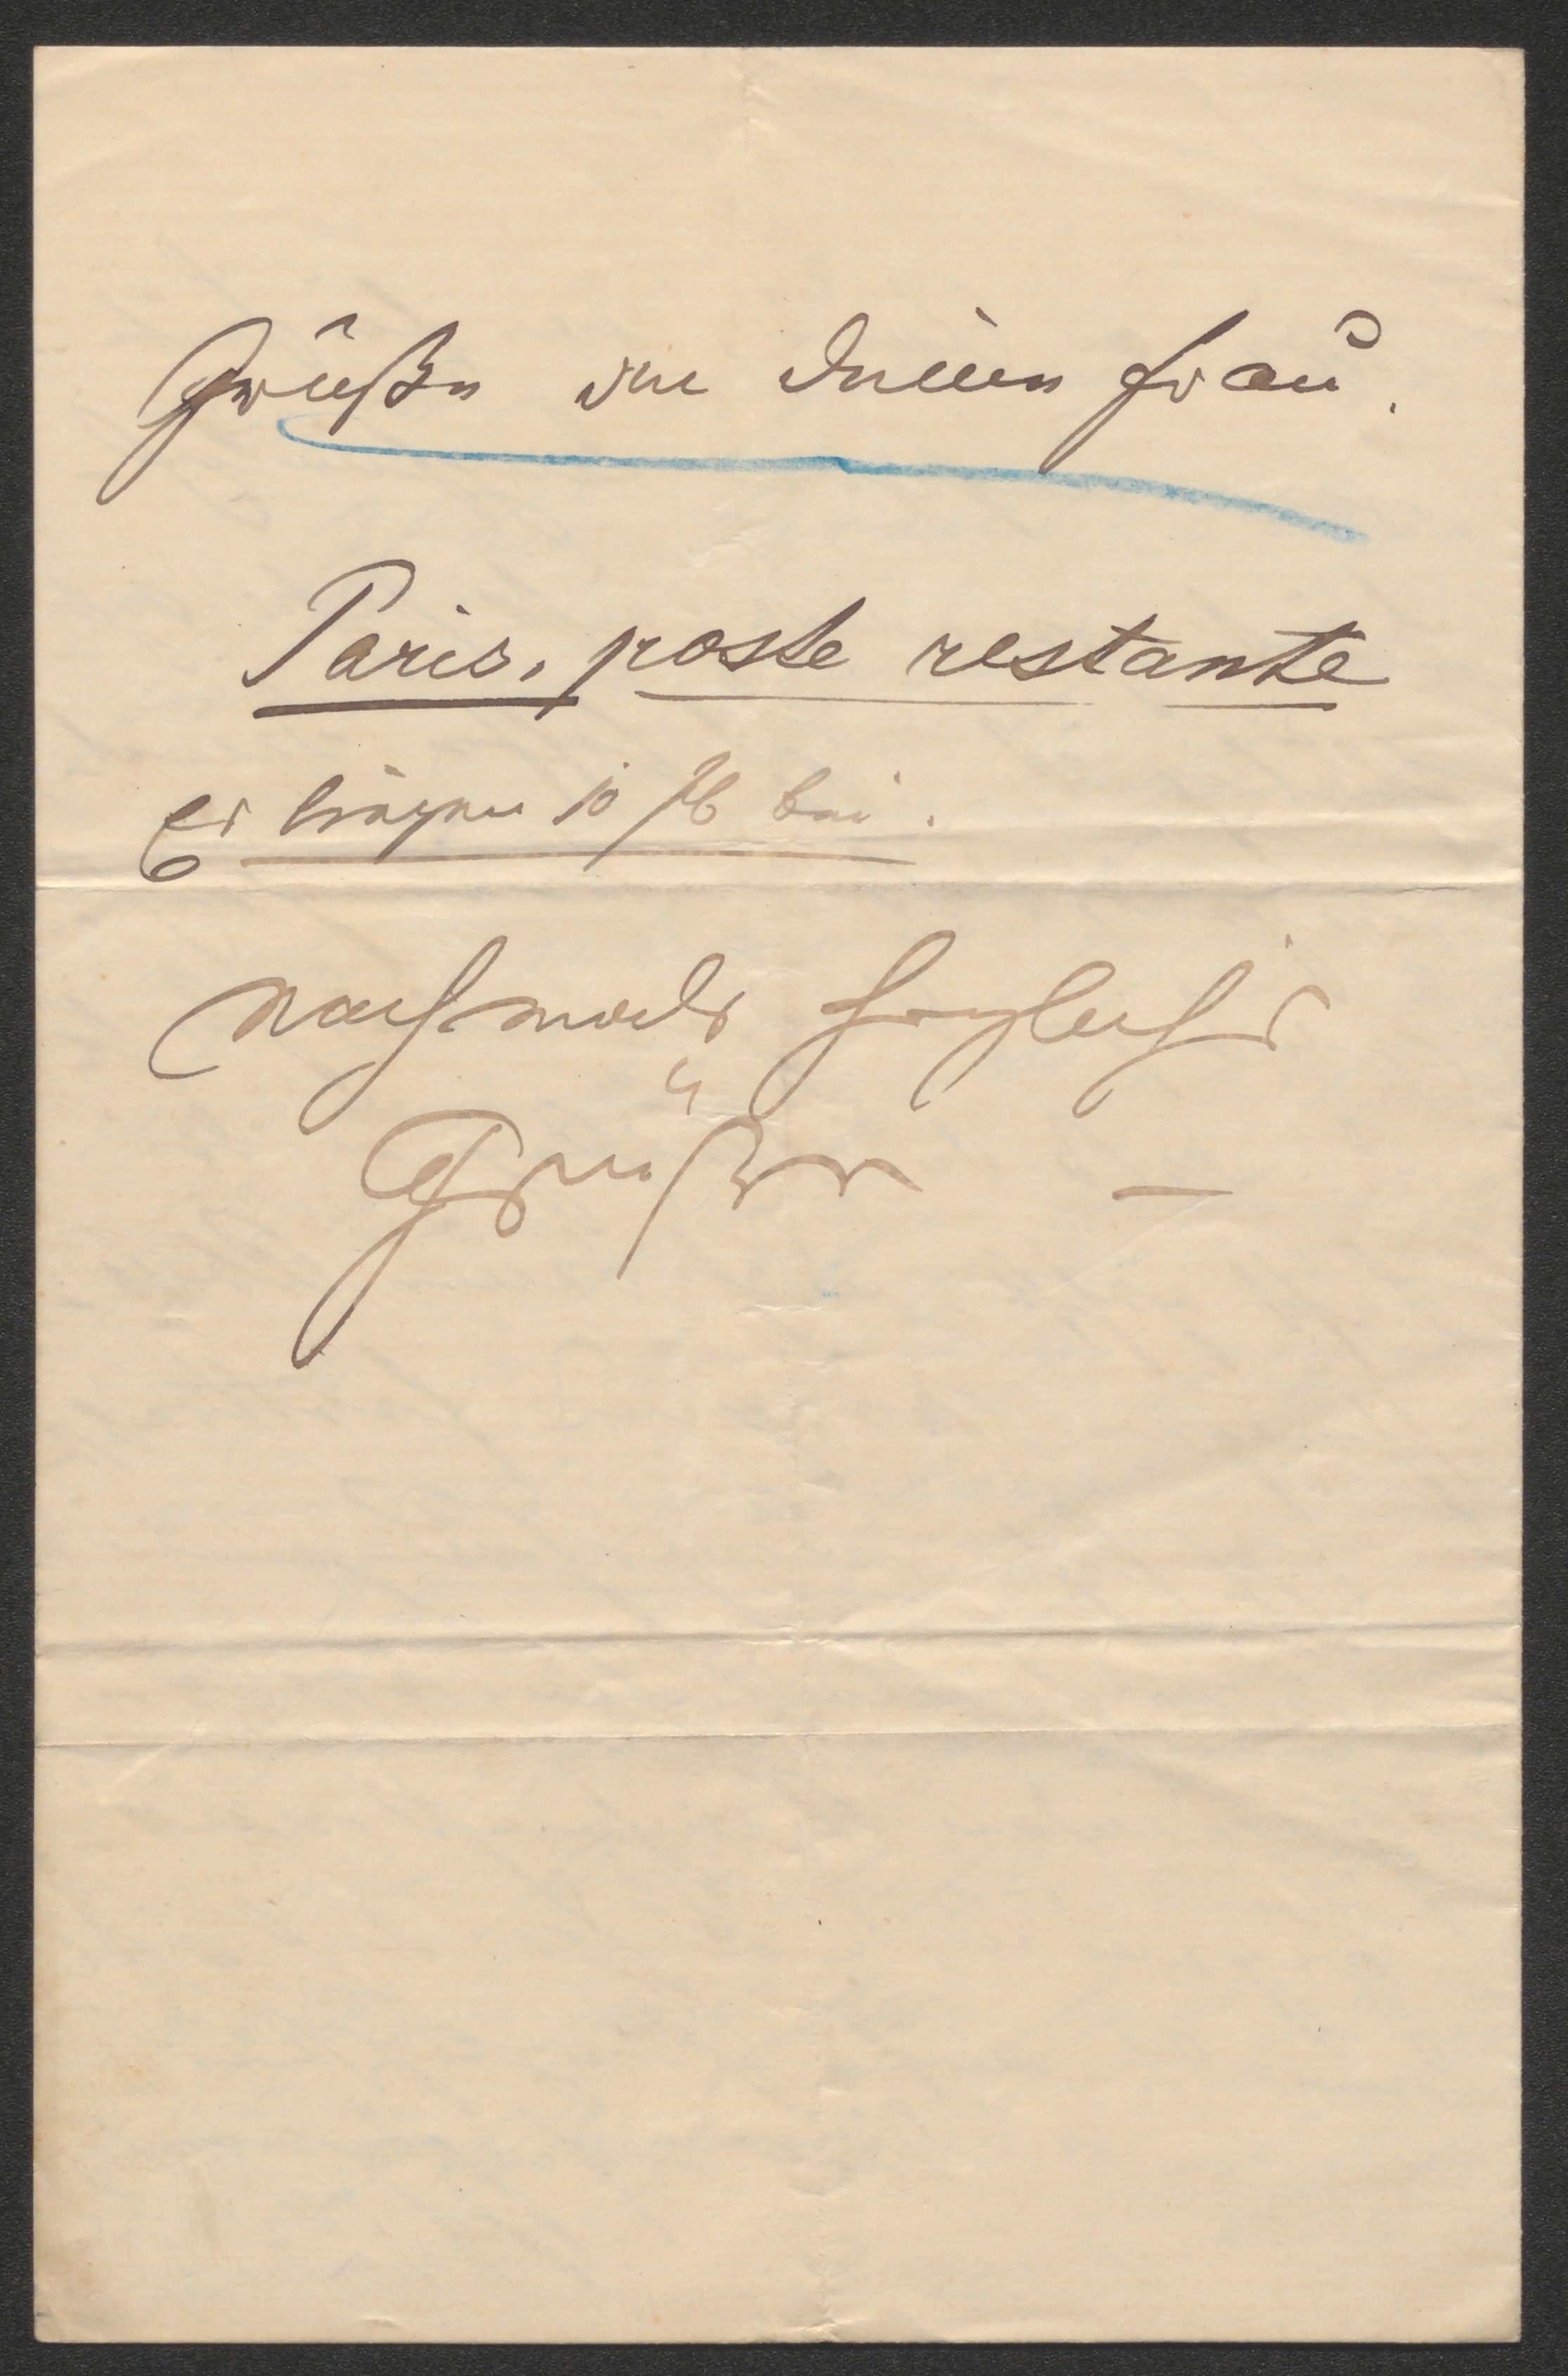 Grüße an Deine Frau.
Paris, poste restante
Es liegen 10 M bei.
Nochmals herzliche
Grüße —